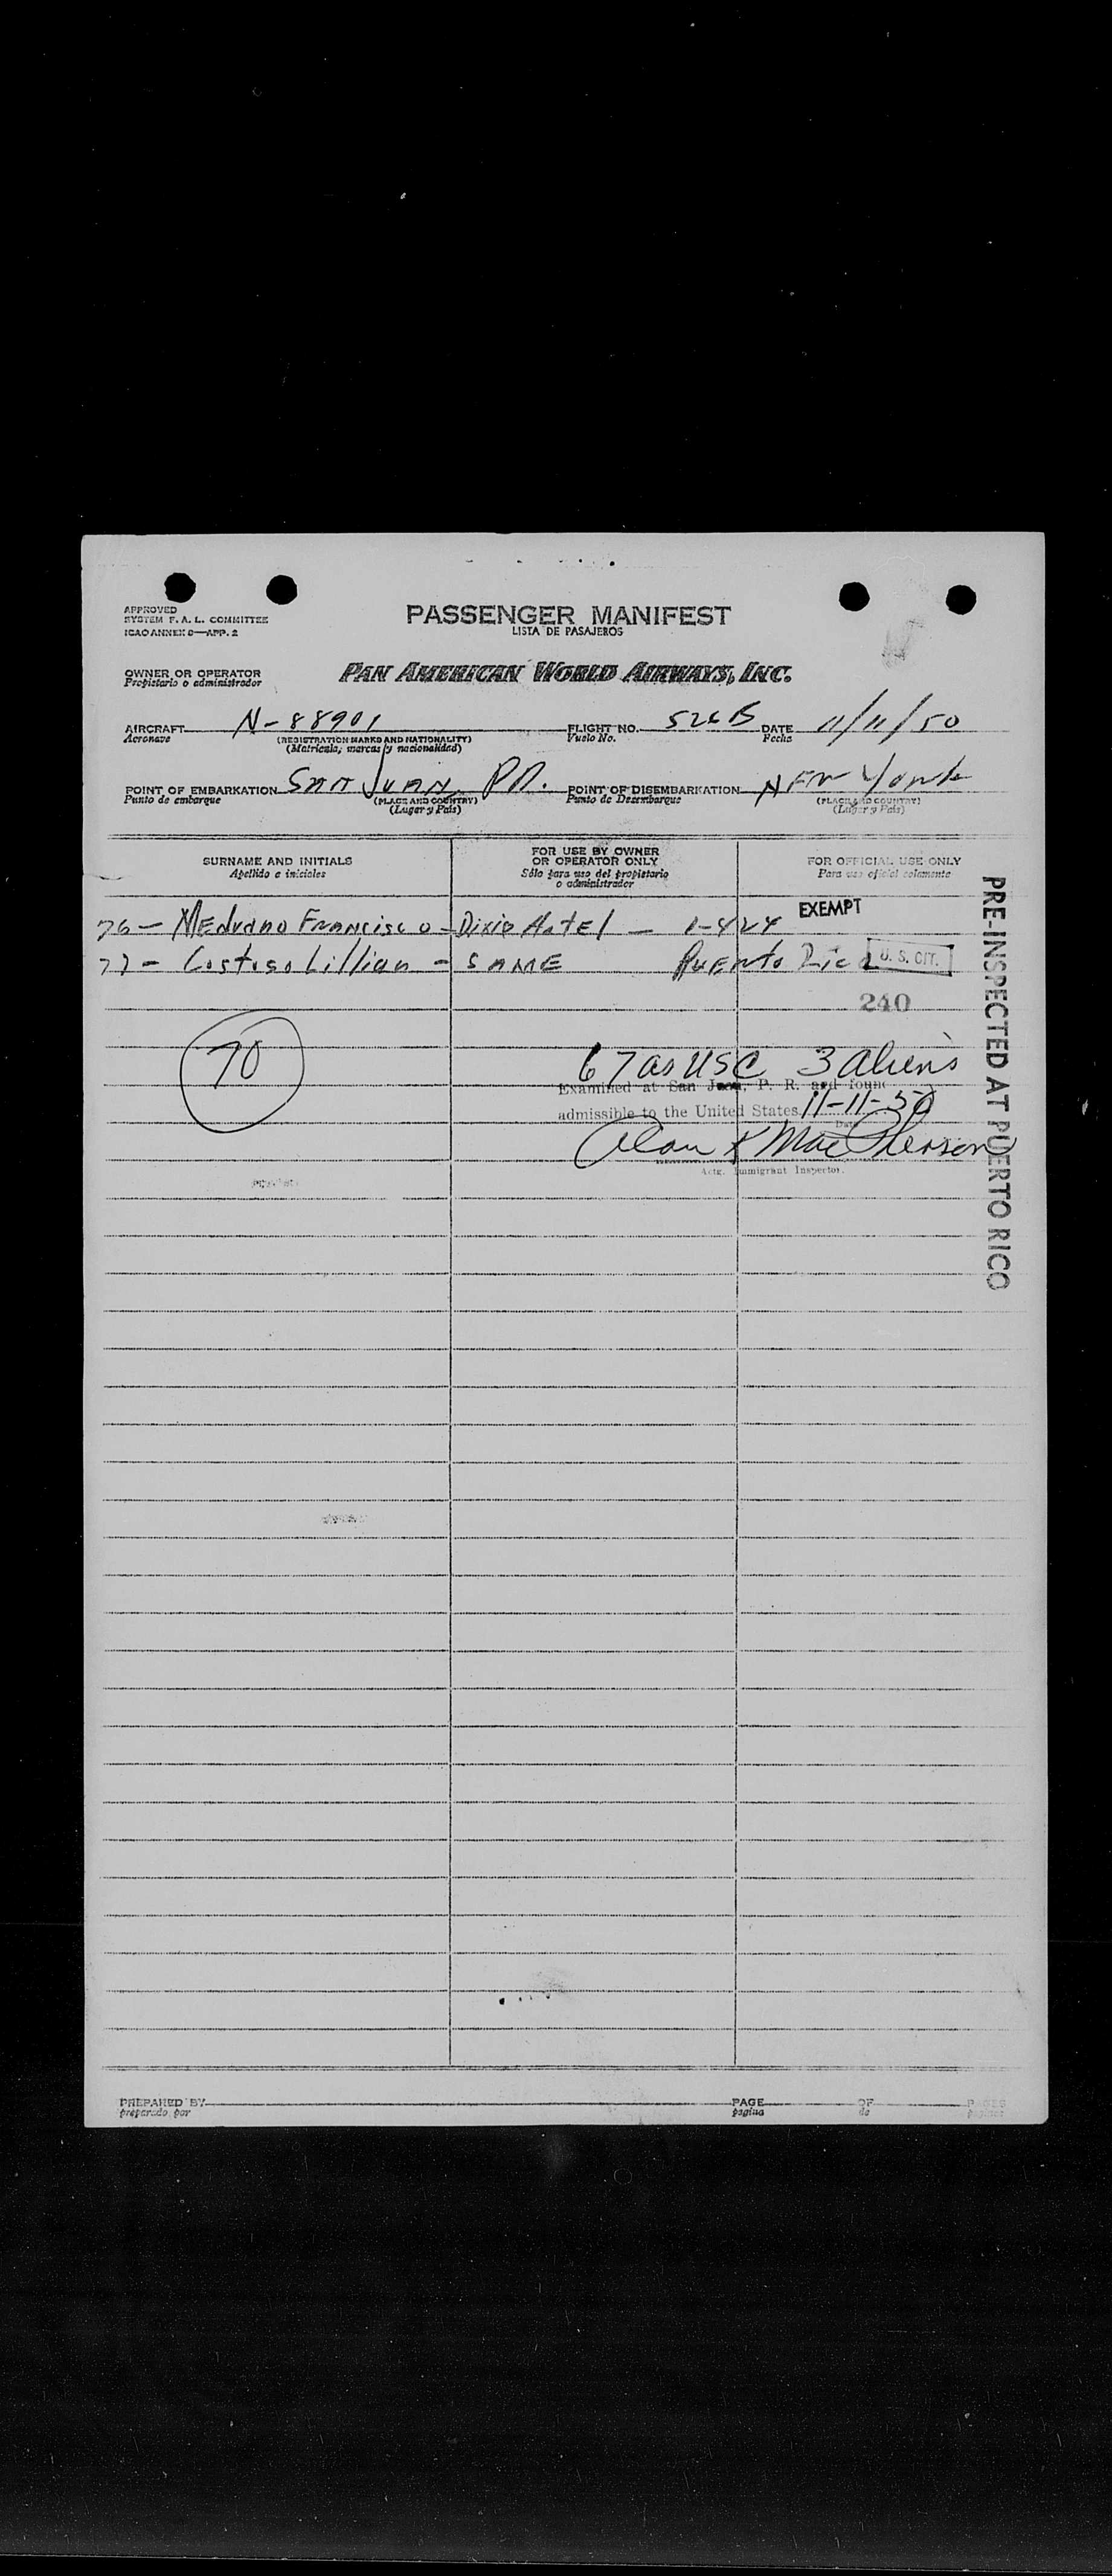 APPROVED
SYSTEM F. A. L. COMMITTEE
ICAO ANNEX 9—APP. 2
PASSENGER MANIFEST
LISTA DE PASAJEROS
OWNER OR OPERATOR
Propietario o administrador
PAN AMERICAN WORLD AIRWAYS, INC.
AIRCRAFT N-88901 FLIGHT NO. 526B DATE 11/11/50
Aeronave (REGISTRATION MARKS AND NATIONALITY) Vuelo No. Fecha
(Matricula, marcas y nacionalidad)
POINT OF EMBARKATION SAN JUAN, PR. POINT OF DISEMBARKATION NEW YORK
Punto de embarque (PLACE AND COUNTRY) Punto de Desembarque (PLACE AND COUNTRY)
(Lugar y País) (Lugar y País)
SURNAME AND INITIALS
Apellido e iniciales
FOR USE BY OWNER
OR OPERATOR ONLY
Sólo para uso del propietario
o administrador
FOR OFFICIAL USE ONLY
Para uso oficial solamente
76 — Medrano Francisco - Dixie Hotel — 1-424 EXEMPT
77 - Costoso Lillian - SAME Puerto Rico U. S. CIT.
240
70
67 as USC 3 aliens
Examined at San Juan, P. R. and found
admissible to the United States 11-11-50
Date
Alan K MacPherson
Actg. Immigrant Inspector.
PRE-INSPECTED AT PUERTO RICO
PREPARED BY PAGE OF PAGES
preparado por pagina de